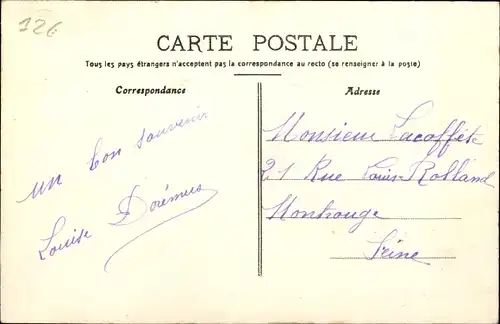 32€
CARTE POSTALE
Tous les pays étrangers n'acceptent pas la correspondance au recto (se renseigner à la poste)
Correspondance
un bon souvenir
Louise Dorémus
Adresse
Monsieur Lacoffète
21 Rue Louis Rolland
Montrouge
Seine